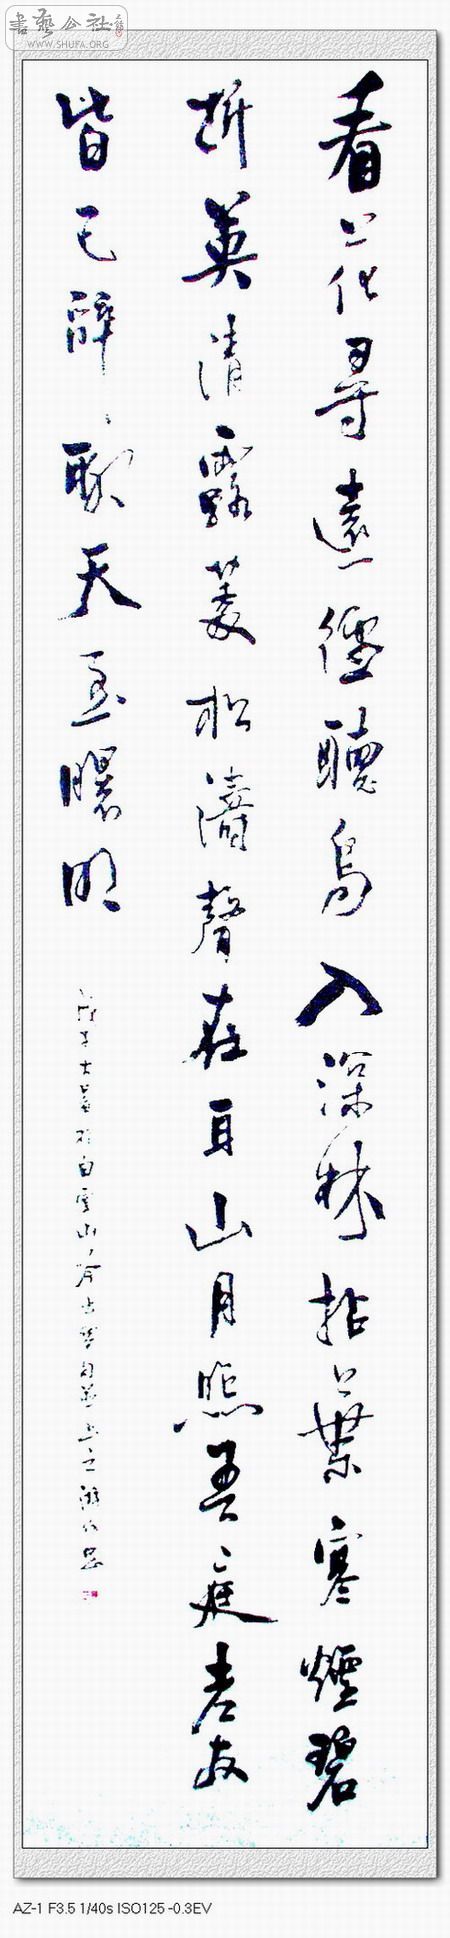 書藝公社
WWW.SHUFA.ORG
看花尋遠徑聽鳥入深林拈葉寒煙碧
折英清露菱松濤聲在耳山月照吾庭老友
皆已醉歌天至曙明
戊子大暑於白雲山
AZ-1 F3.5 1/40s ISO125 -0.3EV